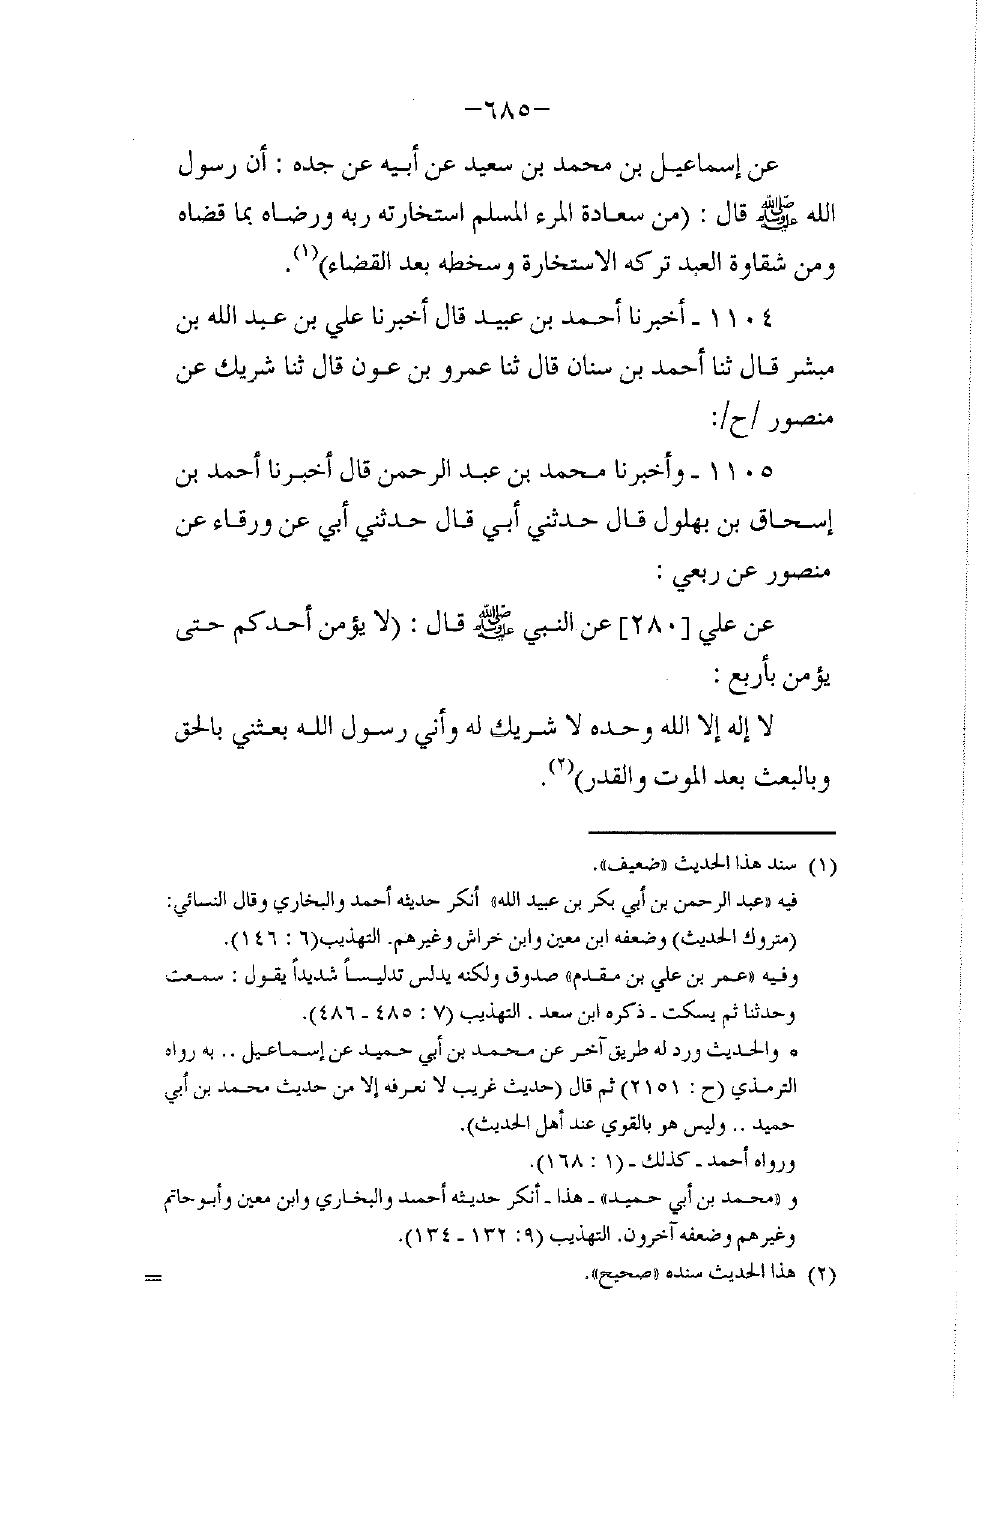 -٦٨٥-
عن إسماعيل بن محمد بن سعيد عن أبيه عن جده : أن رسول
الله ﷺ قال : (من سعادة المرء المسلم استخارته ربه ورضاه بما قضاه
ومن شقاوة العبد تركه الاستخارة وسخطه بعد القضاء)(١).
١١٠٤ ـ أخبرنا أحمد بن عبيد قال أخبرنا علي بن عبد الله بن
مبشر قال ثنا أحمد بن سنان قال ثنا عمرو بن عون قال ثنا شريك عن
منصور /ح/:
١١٠٥ ـ وأخبرنا محمد بن عبد الرحمن قال أخبرنا أحمد بن
إسحاق بن بهلول قال حدثني أبي قال حدثني أبي عن ورقاء عن
منصور عن ربعي :
عن علي [٢٨٠] عن النبي ﷺ قال : (لا يؤمن أحدكم حتى
يؤمن بأربع :
لا إله إلا الله وحده لا شريك له وأني رسول الله بعثني بالحق
وبالبعث بعد الموت والقدر)(٢).
(١) سند هذا الحديث «ضعيف».
فيه «عبد الرحمن بن أبي بكر بن عبيد الله» أنكر حديثه أحمد والبخاري وقال النسائي:
(متروك الحديث) وضعفه ابن معين وابن خراش وغيرهم. التهذيب(٦ : ١٤٦).
وفيه «عمر بن علي بن مقدم» صدوق ولكنه يدلس تدليساً شديداً يقول : سمعت
وحدثنا ثم يسكت ـ ذكره ابن سعد . التهذيب (٧ : ٤٨٥ ـ ٤٨٦).
• والحديث ورد له طريق آخر عن محمد بن أبي حميد عن إسماعيل .. به رواه
الترمذي (ح : ٢١٥١) ثم قال (حديث غريب لا نعرفه إلا من حديث محمد بن أبي
حميد .. وليس هو بالقوي عند أهل الحديث).
ورواه أحمد ـ كذلك ـ (١ : ١٦٨).
و «محمد بن أبي حميد» ـ هذا ـ أنكر حديثه أحمد والبخاري وابن معين وأبو حاتم
وغيرهم وضعفه آخرون. التهذيب (٩: ١٣٢ ـ ١٣٤).
(٢) هذا الحديث سنده «صحيح». =